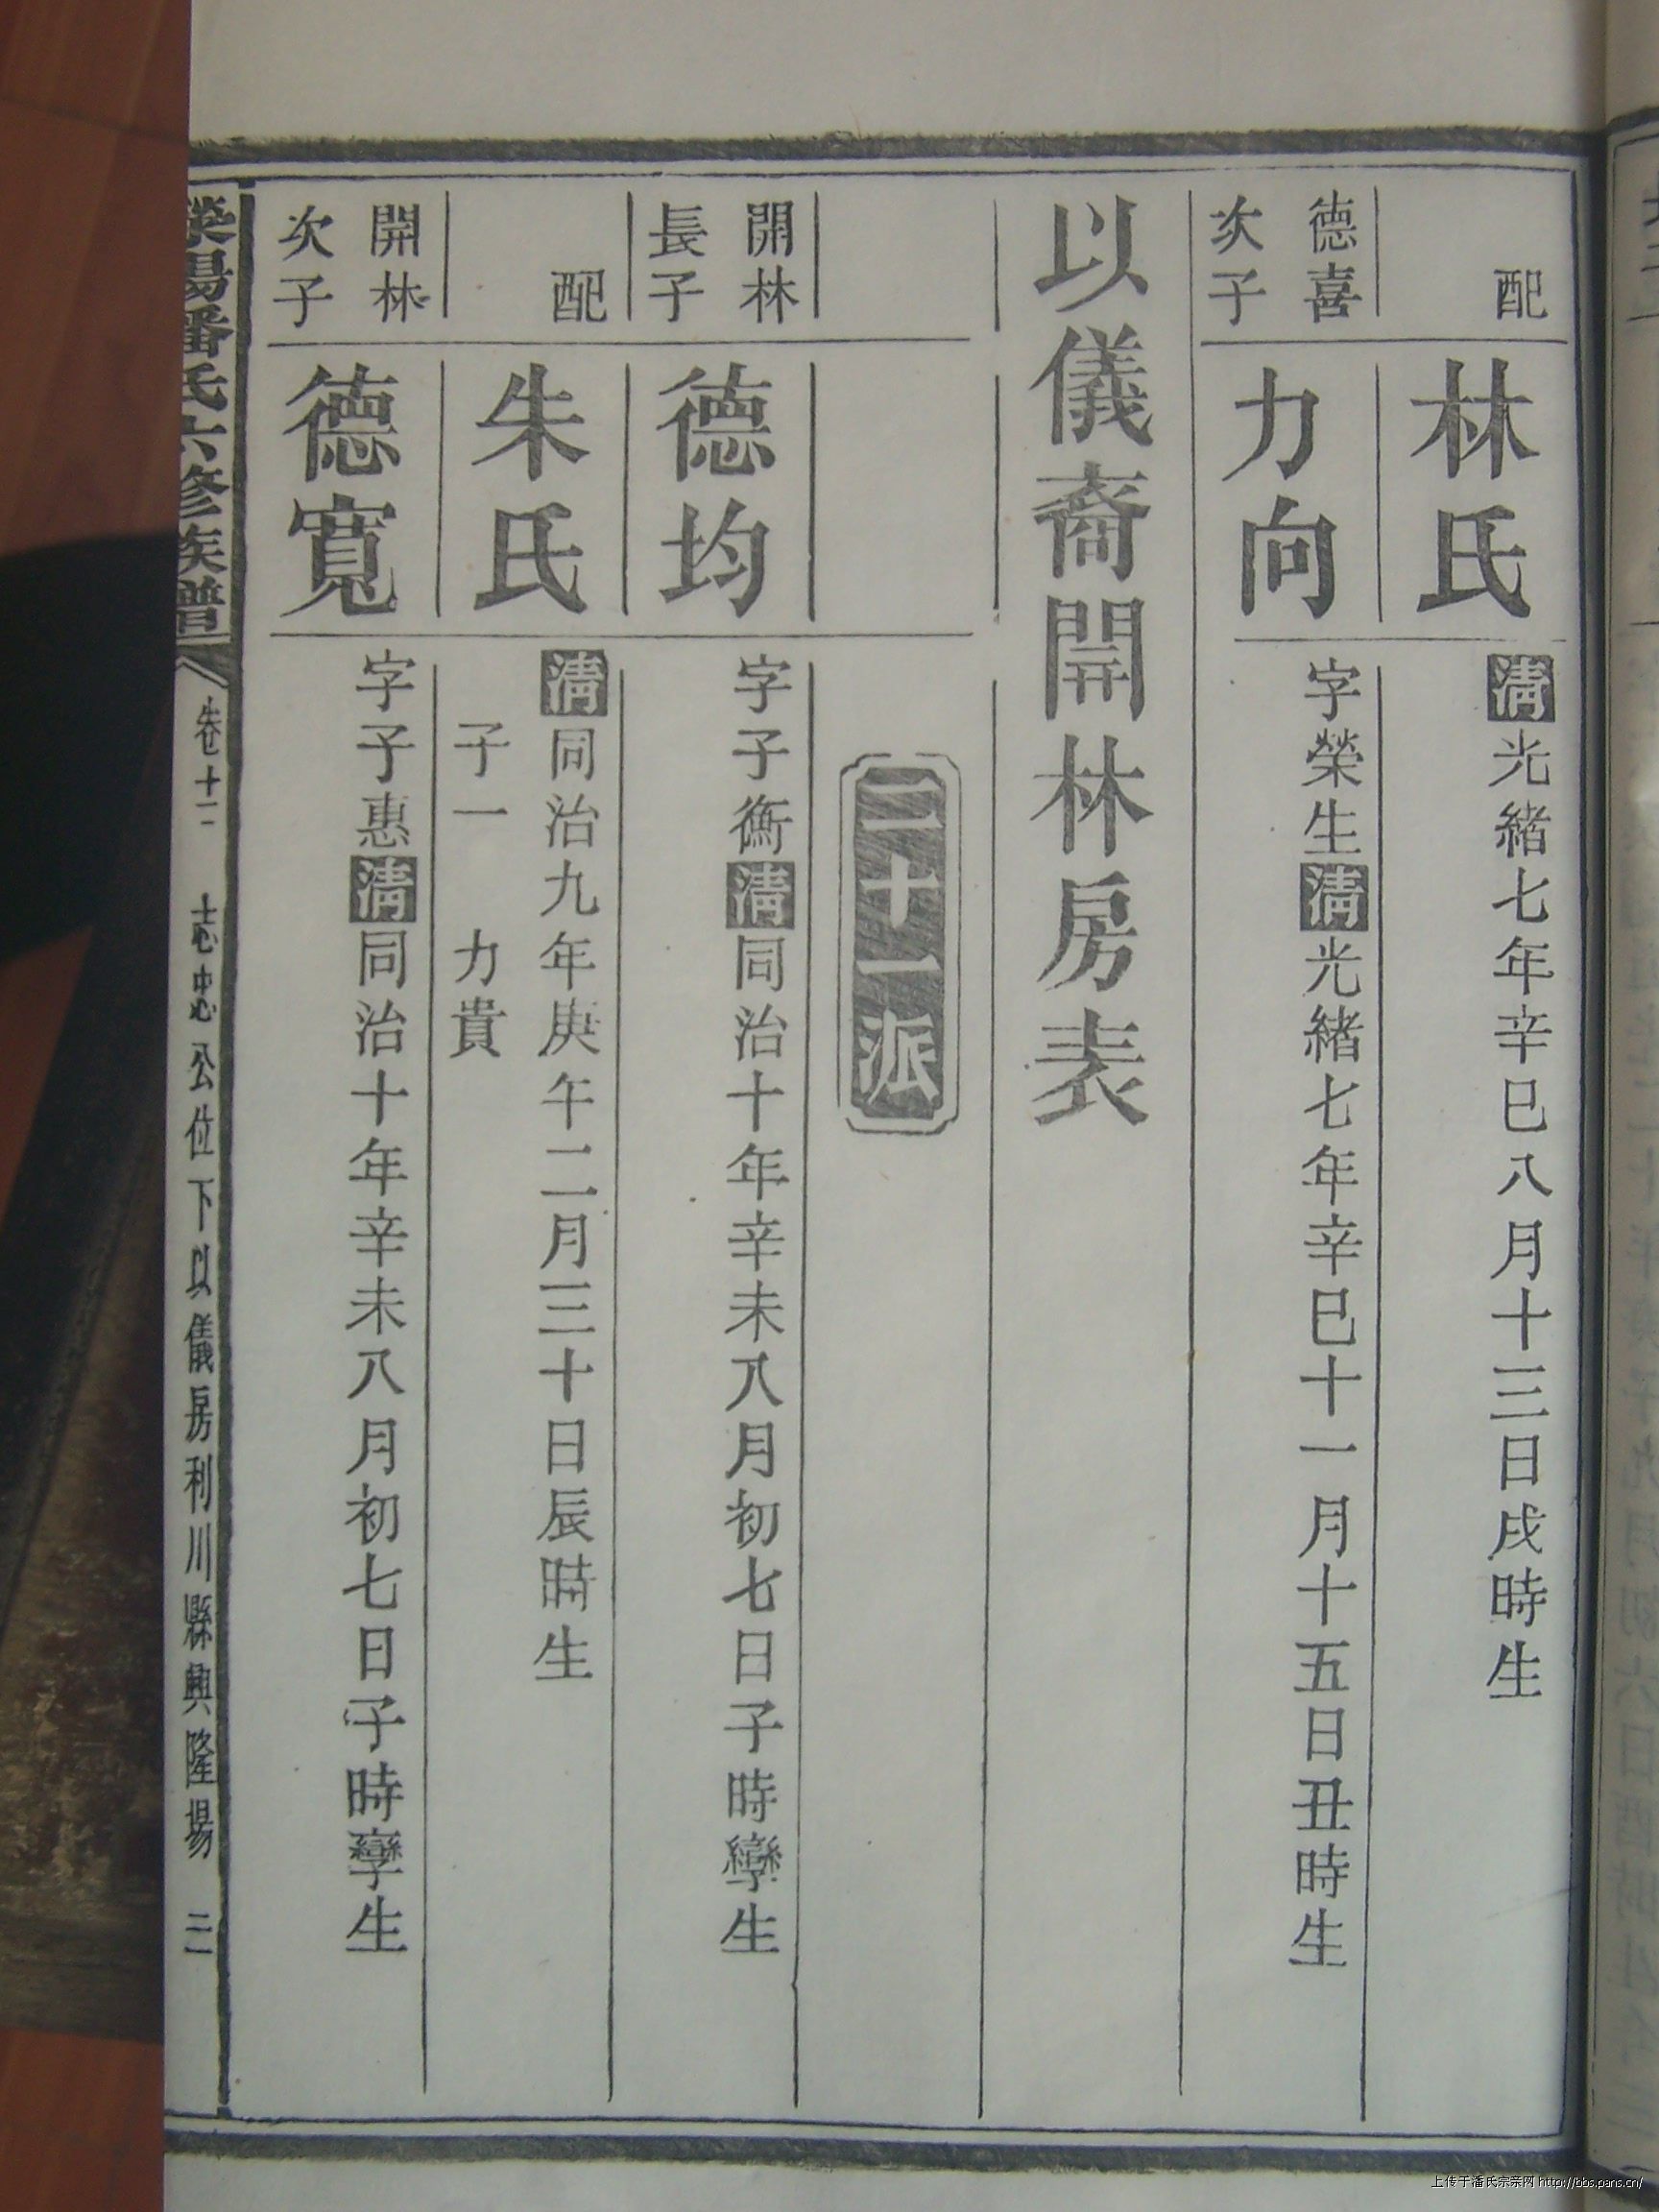 配 林氏 清光緒七年辛巳八月十三日戌時生
德喜次子 力向 字榮生清光緒七年辛巳十一月十五日丑時生
以儀裔開林房表
二十一派
開林長子 德均 字子衡清同治十年辛未八月初七日子時孿生
配 朱氏 清同治九年庚午二月三十日辰時生
子一 力貴
開林次子 德寬 字子惠清同治十年辛未八月初七日子時孿生
滎陽潘氏六修族譜 卷十二 志忠公位下以儀房利川縣興隆場 二
上传于潘氏宗亲网 http://bbs.pans.cn/